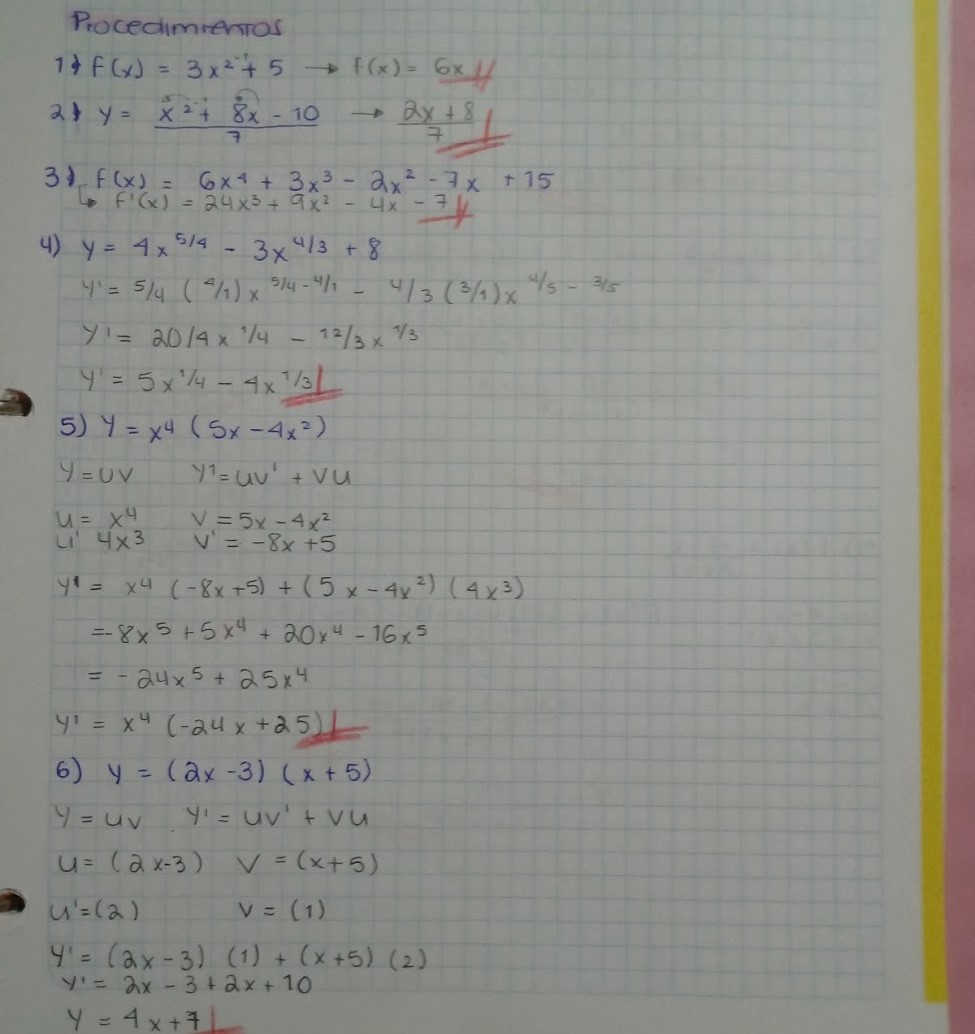 Procedimientos
1) f(x) = 3x² + 5 → f(x) = 6x
2) y = x² + 8x - 10 / 7 → 2x + 8 / 7
3) f(x) = 6x⁴ + 3x³ - 2x² - 7x + 15
↳ f'(x) = 24x³ + 9x² - 4x - 7
4) y = 4x^5/4 - 3x^4/3 + 8
y' = 5/4 (4/1) x^5/4 - 4/1 - 4/3 (3/1) x^4/5 - 3/5
y' = 20/4 x^1/4 - 12/3 x^1/3
y' = 5x^1/4 - 4x^1/3
5) y = x⁴ (5x - 4x²)
y = uv y' = uv' + vu
u = x⁴ v = 5x - 4x²
u' 4x³ v' = -8x + 5
y' = x⁴ (-8x + 5) + (5x - 4x²) (4x³)
= -8x⁵ + 5x⁴ + 20x⁴ - 16x⁵
= -24x⁵ + 25x⁴
y' = x⁴ (-24x + 25)
6) y = (2x - 3) (x + 5)
y = uv y' = uv' + vu
u = (2x - 3) v = (x + 5)
u' = (2) v = (1)
y' = (2x - 3) (1) + (x + 5) (2)
y' = 2x - 3 + 2x + 10
y = 4x + 7